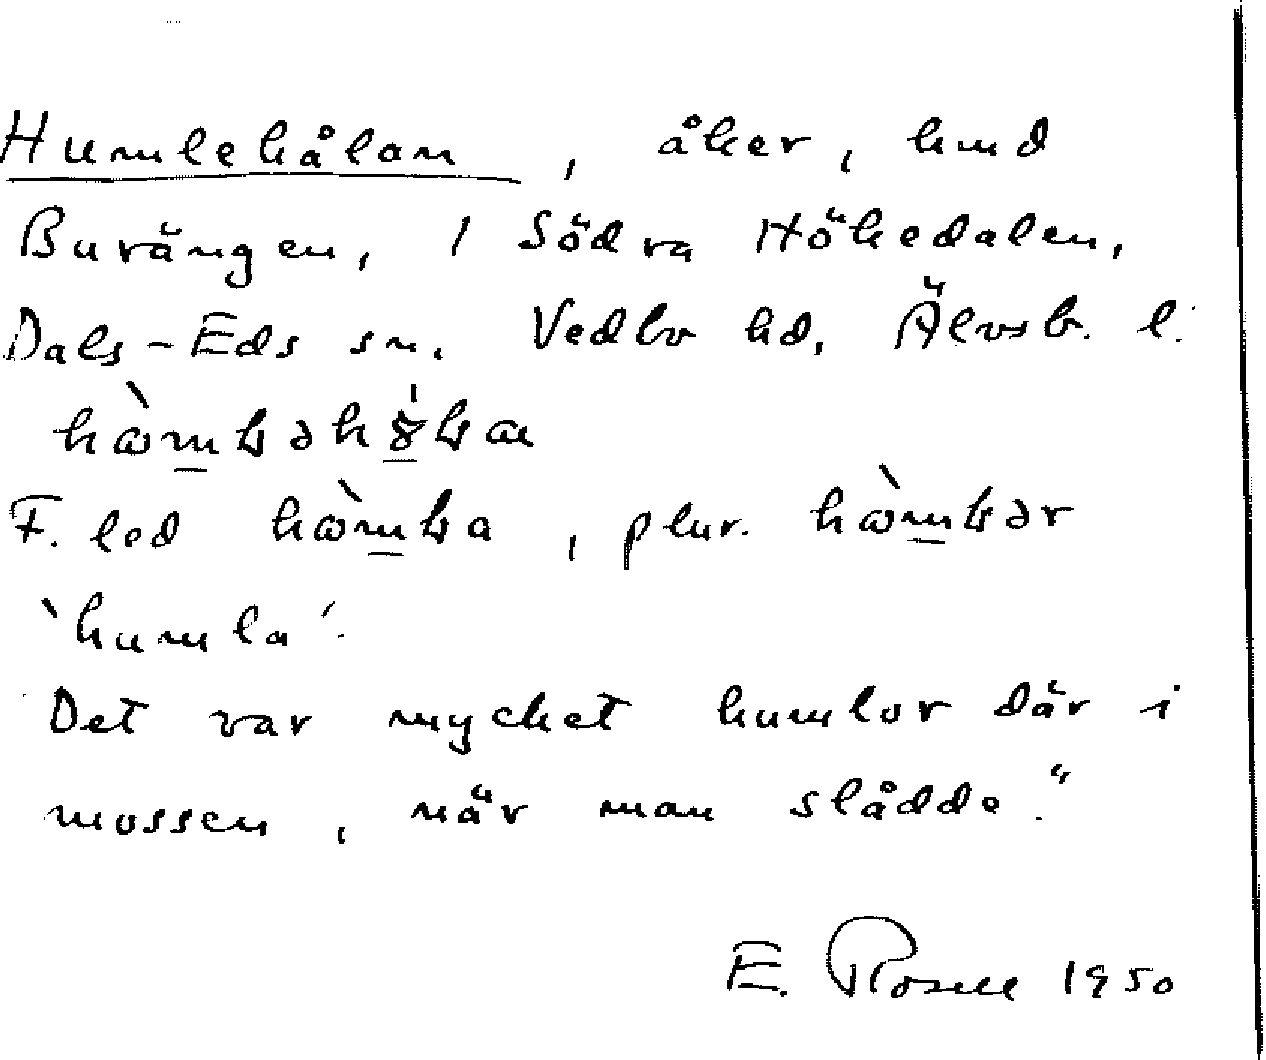 Humlehålan, åker, hmd
Burängen, 1 Södra Hökedalen,
Dals-Eds sn. Vedbo hd, Älvsb. l.
F. led , plur.
`humla´.
Det var mycket humlor där i
mossen, när man slådde."
E. Rosell 1950